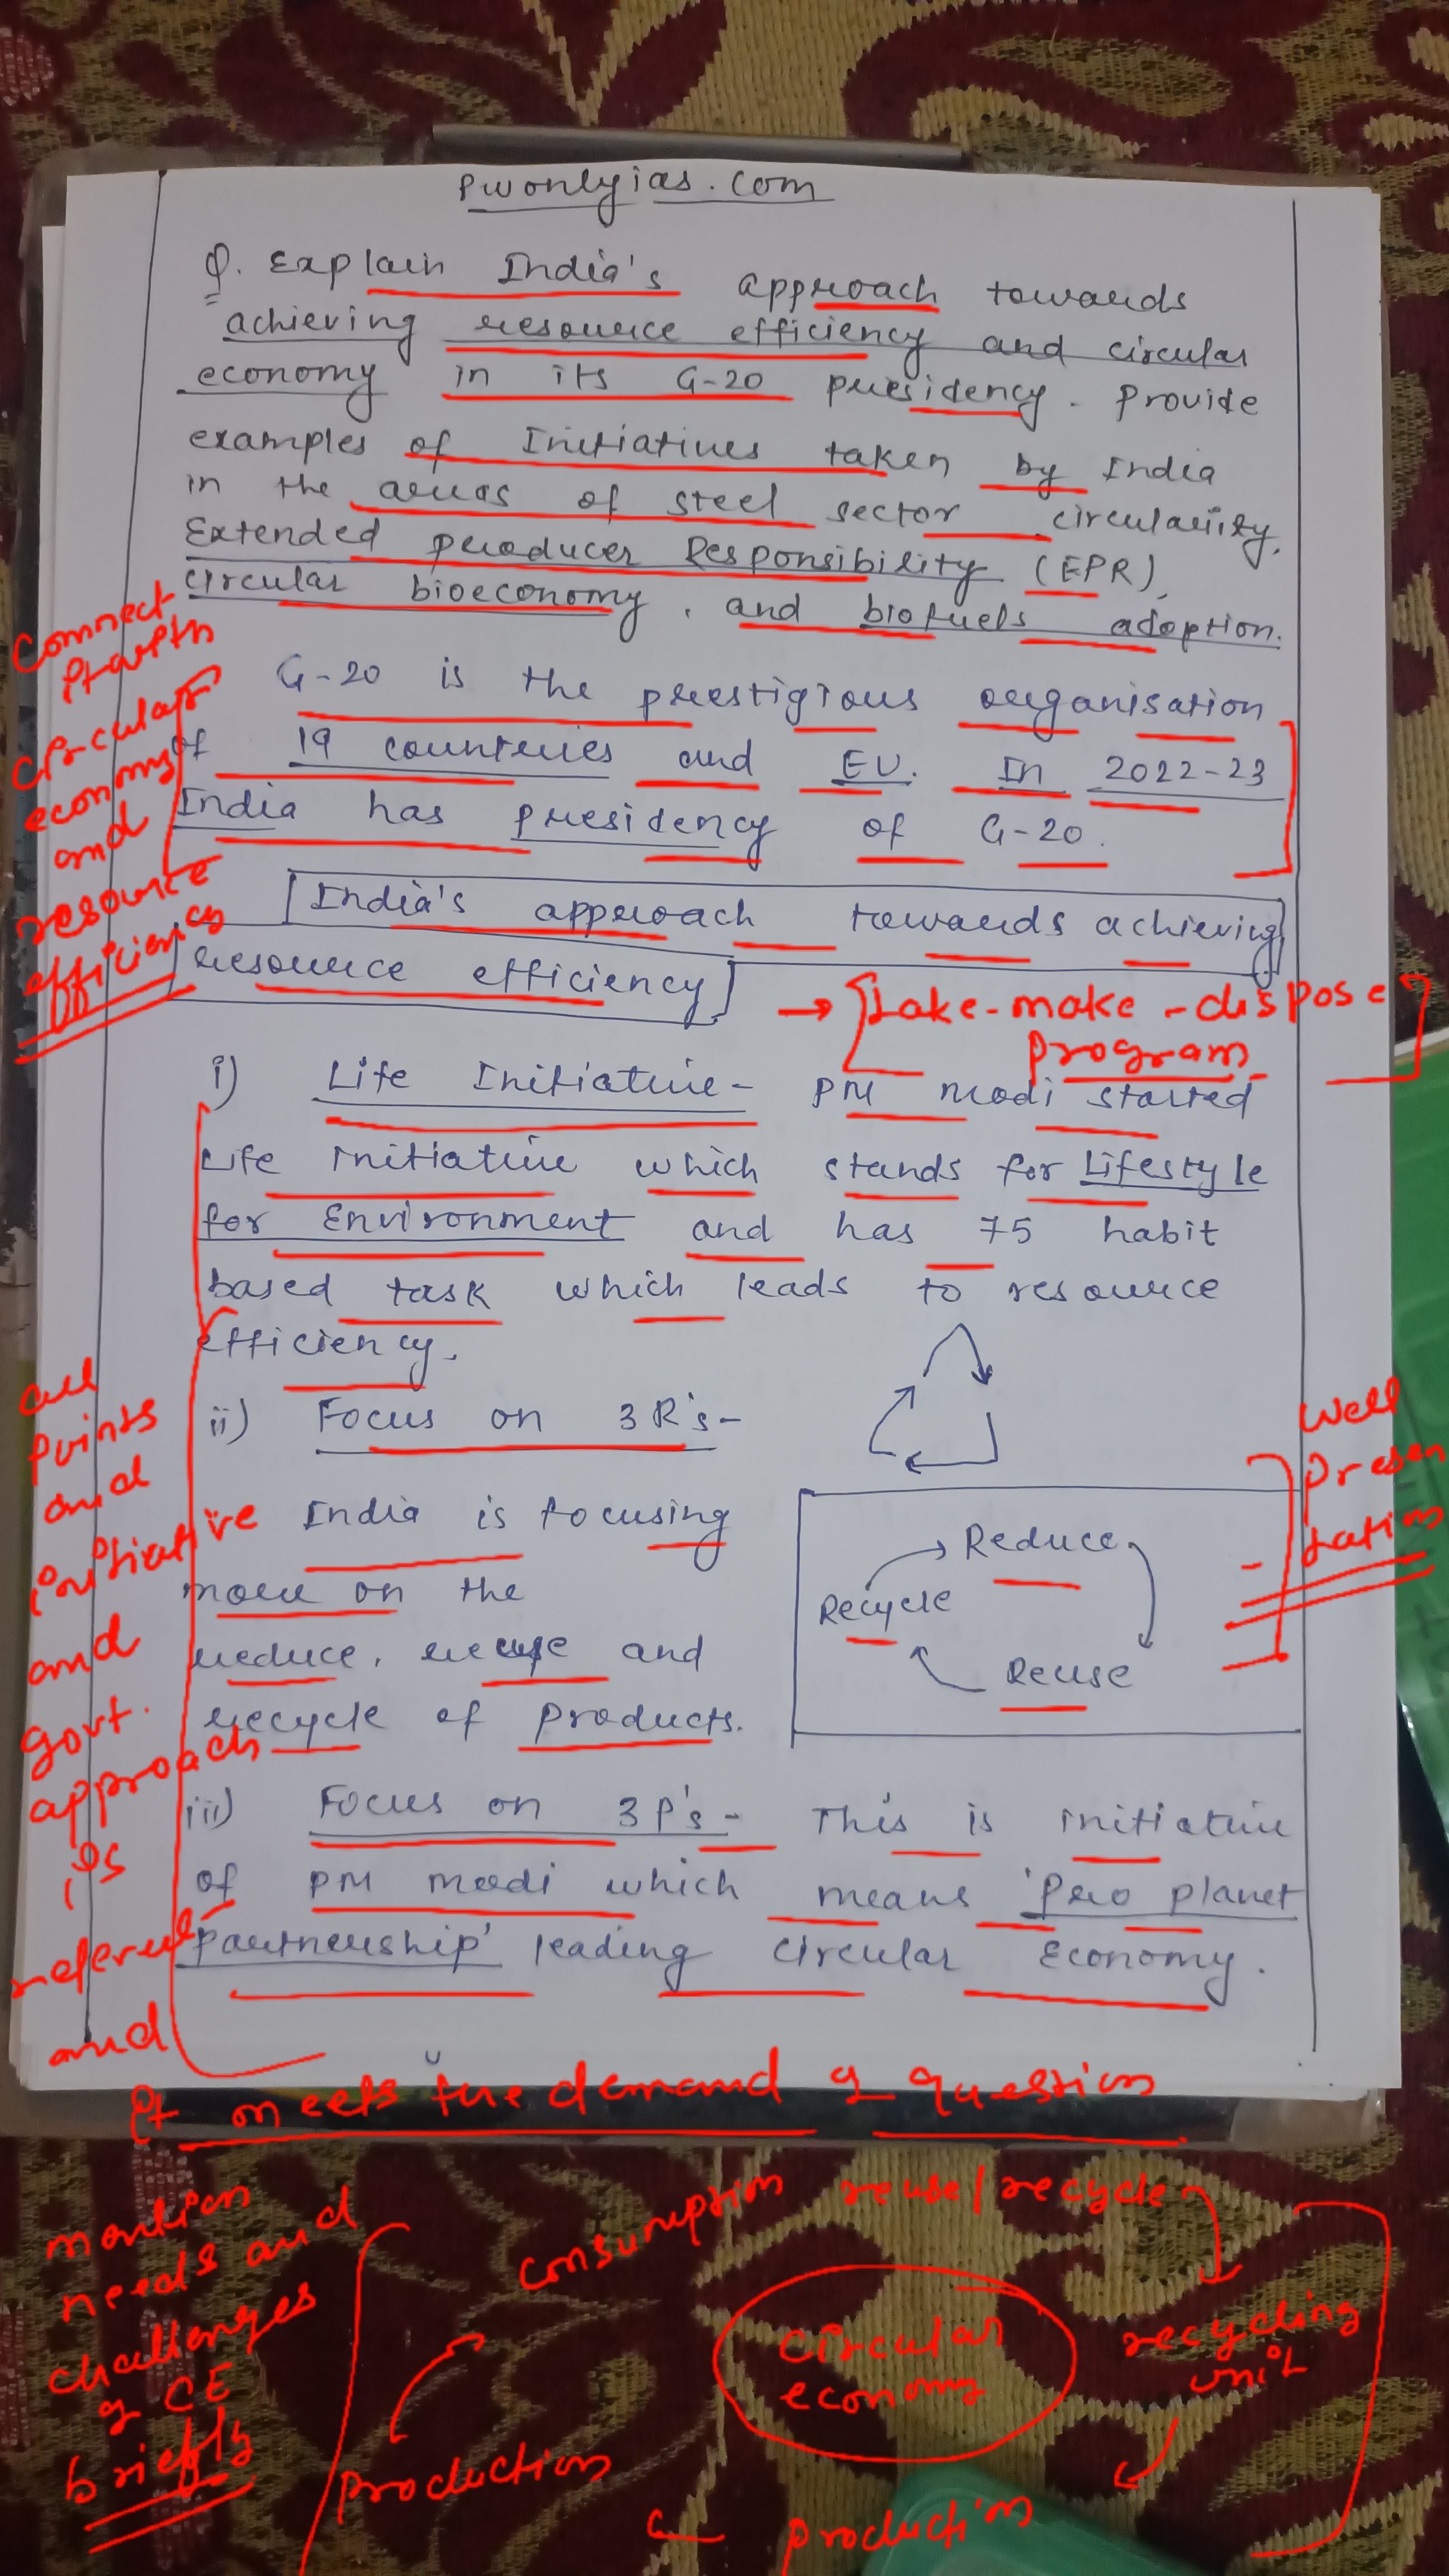 pwonlyias.com
Q. Explain India's approach towards
achieving resource efficiency and circular
economy in its G-20 presidency. Provide
examples of Initiatives taken by India
in the areas of steel sector circularity,
Extended producer Responsibility (EPR),
circular bioeconomy, and biofuels adoption.
Connect
G-20 is the prestigious organisation
of 19 countries and EU. In 2022-23
India has presidency of G-20.
circular
economy
and
resource
efficiency
India's approach towards achieving
resource efficiency
→ [take-make-dispose
program
i) Life Initiative- PM Modi started
Life initiative which stands for Lifestyle
for Environment and has 75 habit
based task which leads to resource
efficiency.
ii) Focus on 3R's-
India is focusing
more on the
reduce, reuse and
recycle of products.
Reduce
Recycle
Reuse
Well
presen
tation
iii) Focus on 3P's- This is initiative
of PM modi which means 'Pro planet
partnership' leading circular Economy.
all
points
and
initiative
and
govt.
approach
is
and
it meets the demand of question
mention
needs and
challenges
of CE
briefly
consumption reuse/recycle
circular
economy
recycling
unit
production
production